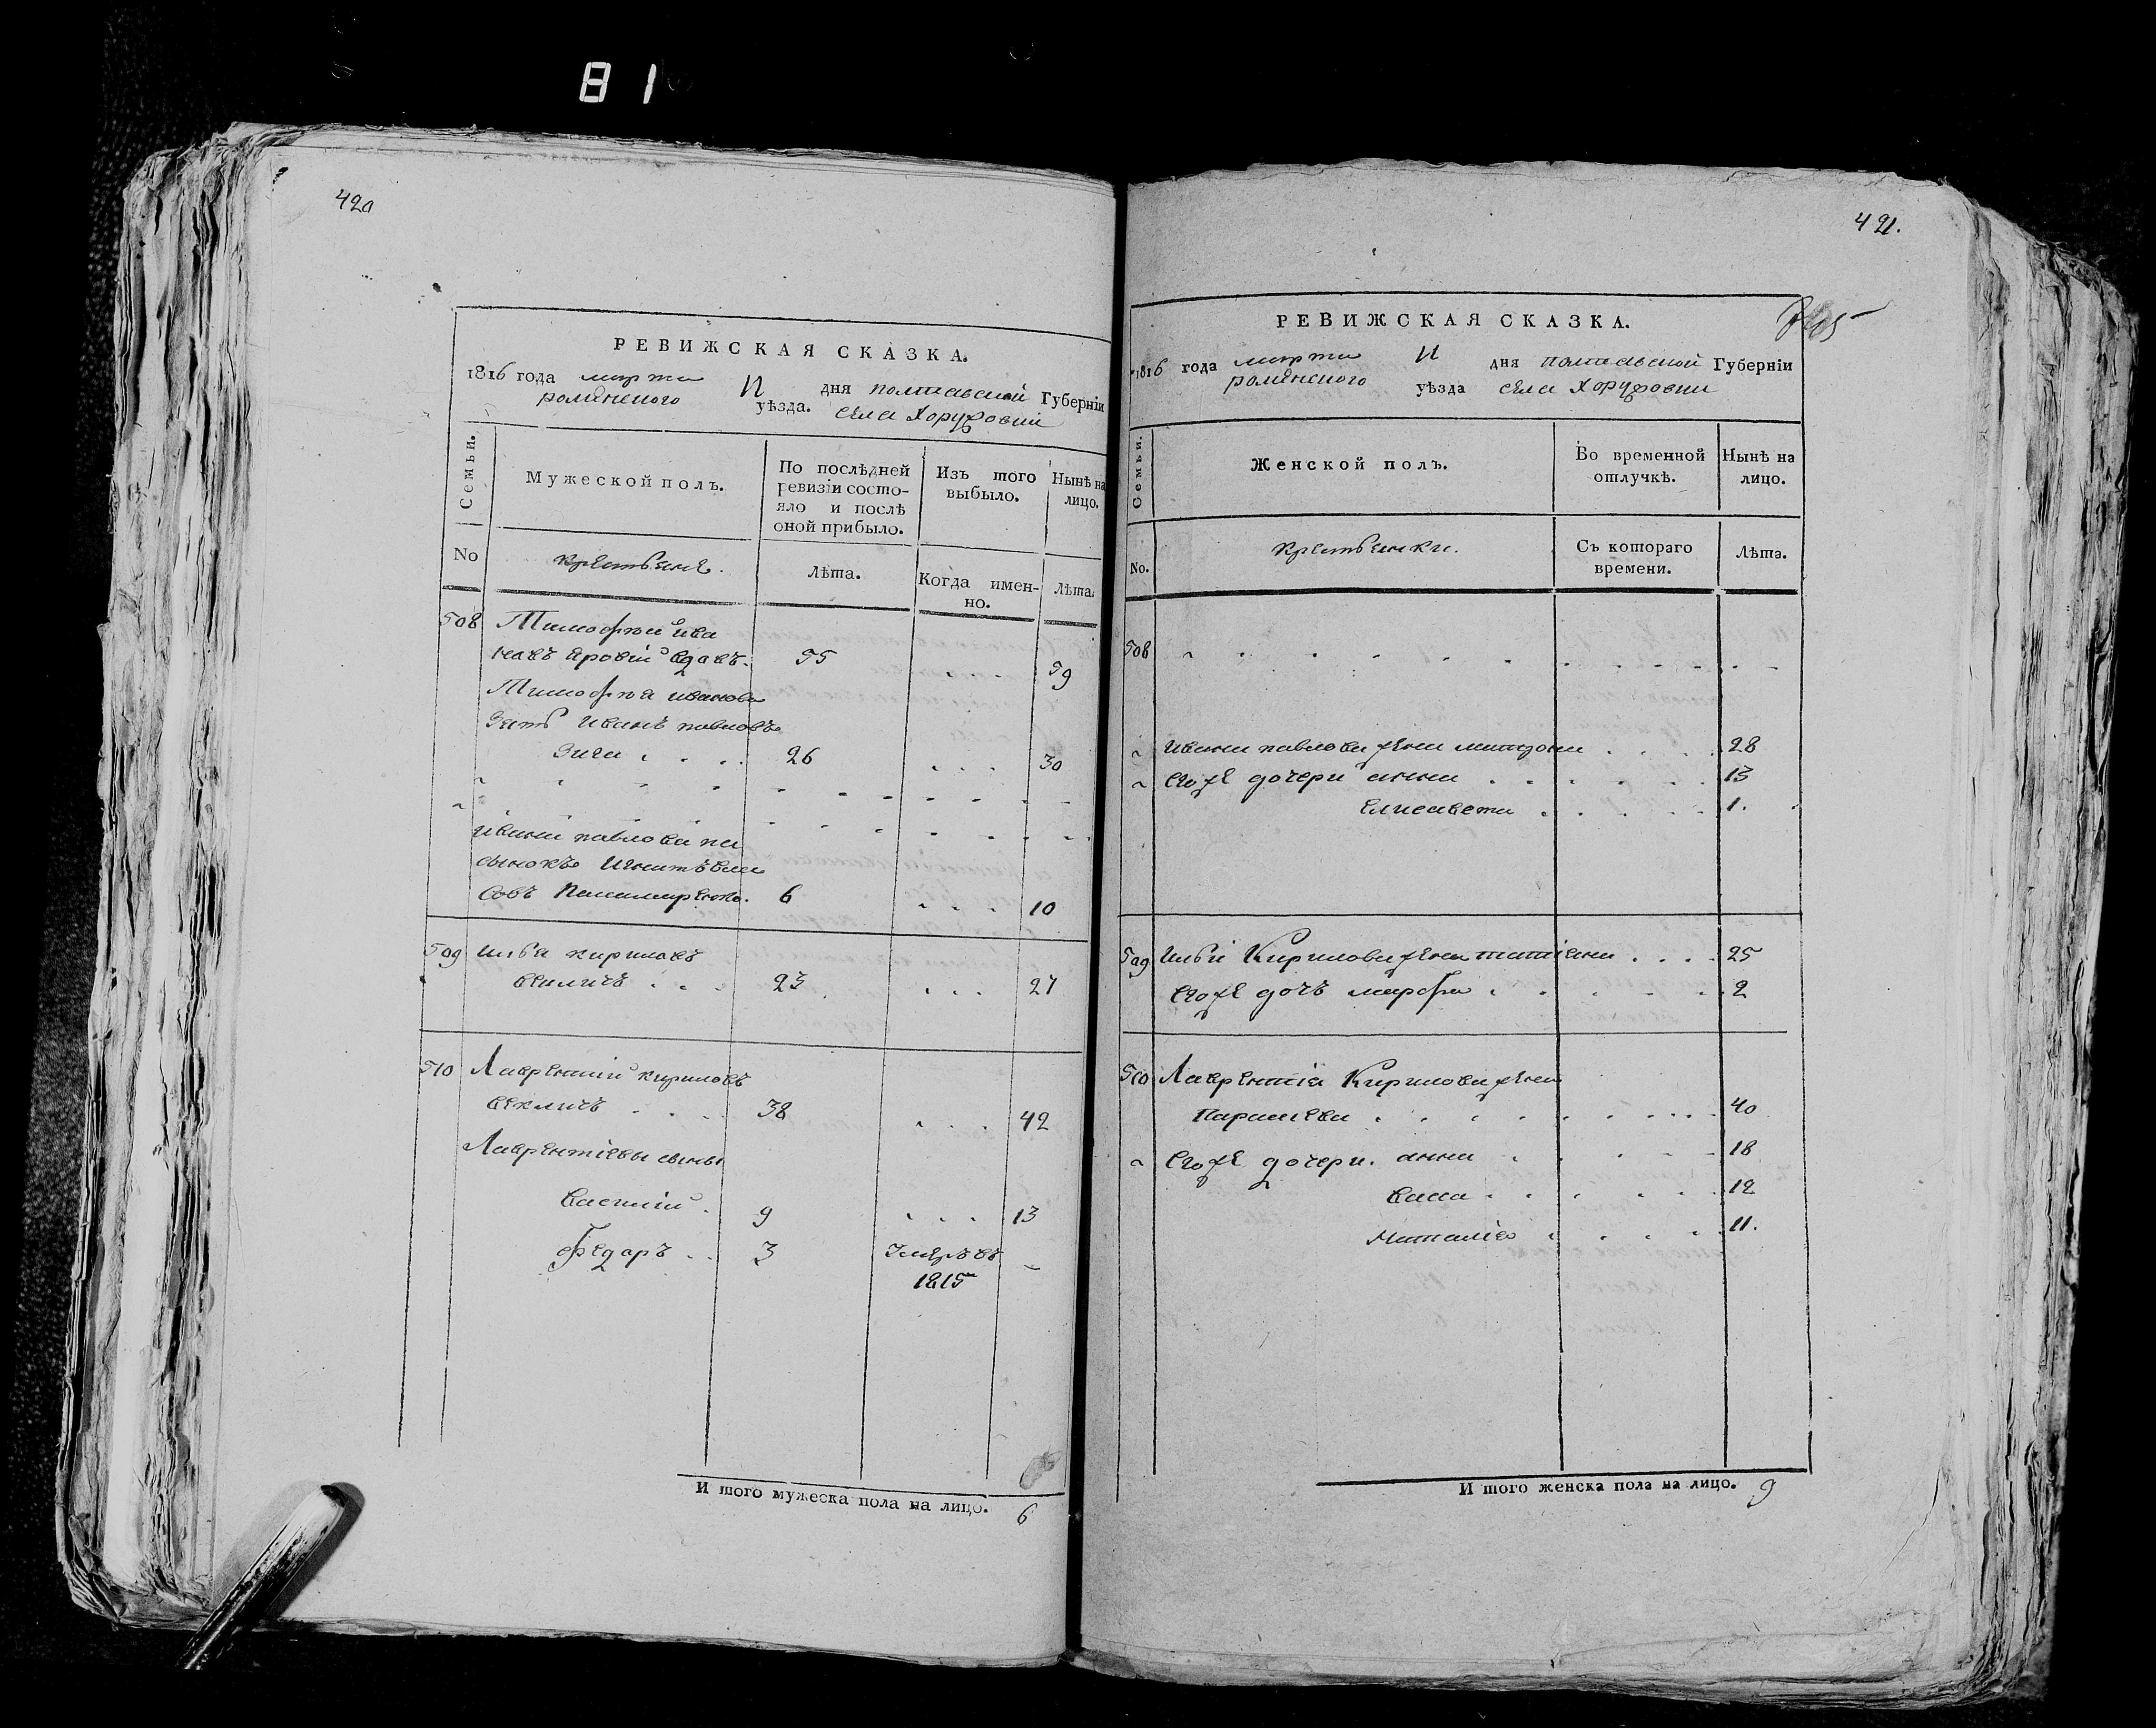 81
420
РЕВИЖСКАЯ СКАЗКА.
1816 года марта 11 дня полтавской Губерніи
роменского уѣзда. села Хоружовки
Семьи.
Мужеской полъ.
По послѣдней ревизіи состояло и послѣ оной прибыло.
Изъ того выбыло.
Нынѣ на лицо.
No
крестьяне.
Лѣта.
Когда именно.
Лѣта.
508 Тимофѣй ива
новъ яровій вдовъ. 55 . . . 59
Тимофѣя иванова
зять иванъ павловъ
Зига . . . . 26 . . . 30
ивана павлова па
сынокъ Игнатъ вла
совъ 6 . . . 10
509 илья кириловъ
векличъ . . . 23 . . . 27
510 Лаврентій кириловъ
векличъ . . . . 38 . . . 42
Лаврентіевы сыны
Василій . 9 . . . 13
Федаръ . . 3 Умре въ –
1815
И того мужеска пола на лицо. 6
421.
РЕВИЖСКАЯ СКАЗКА.
1816 года марта 11 дня полтавской Губерніи
роменского уѣзда села Хоружовки
Семьи.
Женской полъ.
Во временной отлучкѣ.
Нынѣ на лицо.
No.
крестьянки.
Съ котораго времени.
Лѣта.
508
ивана павлова жена матрона . . . . 28
его же дочери анна . . . . . . 13
елисавета . . . . . 1.
509 ильи Кирилова жена татіяна . . . . 25
его же дочь марфа . . . . . 2
510 Лаврентія Кирилова жена
Параскева . . . . . . . . . . 40
его же дочери. анна . . . . . 18
васса . . . . . 12
Наталія . . . . . 11.
И того женска пола на лицо. 9